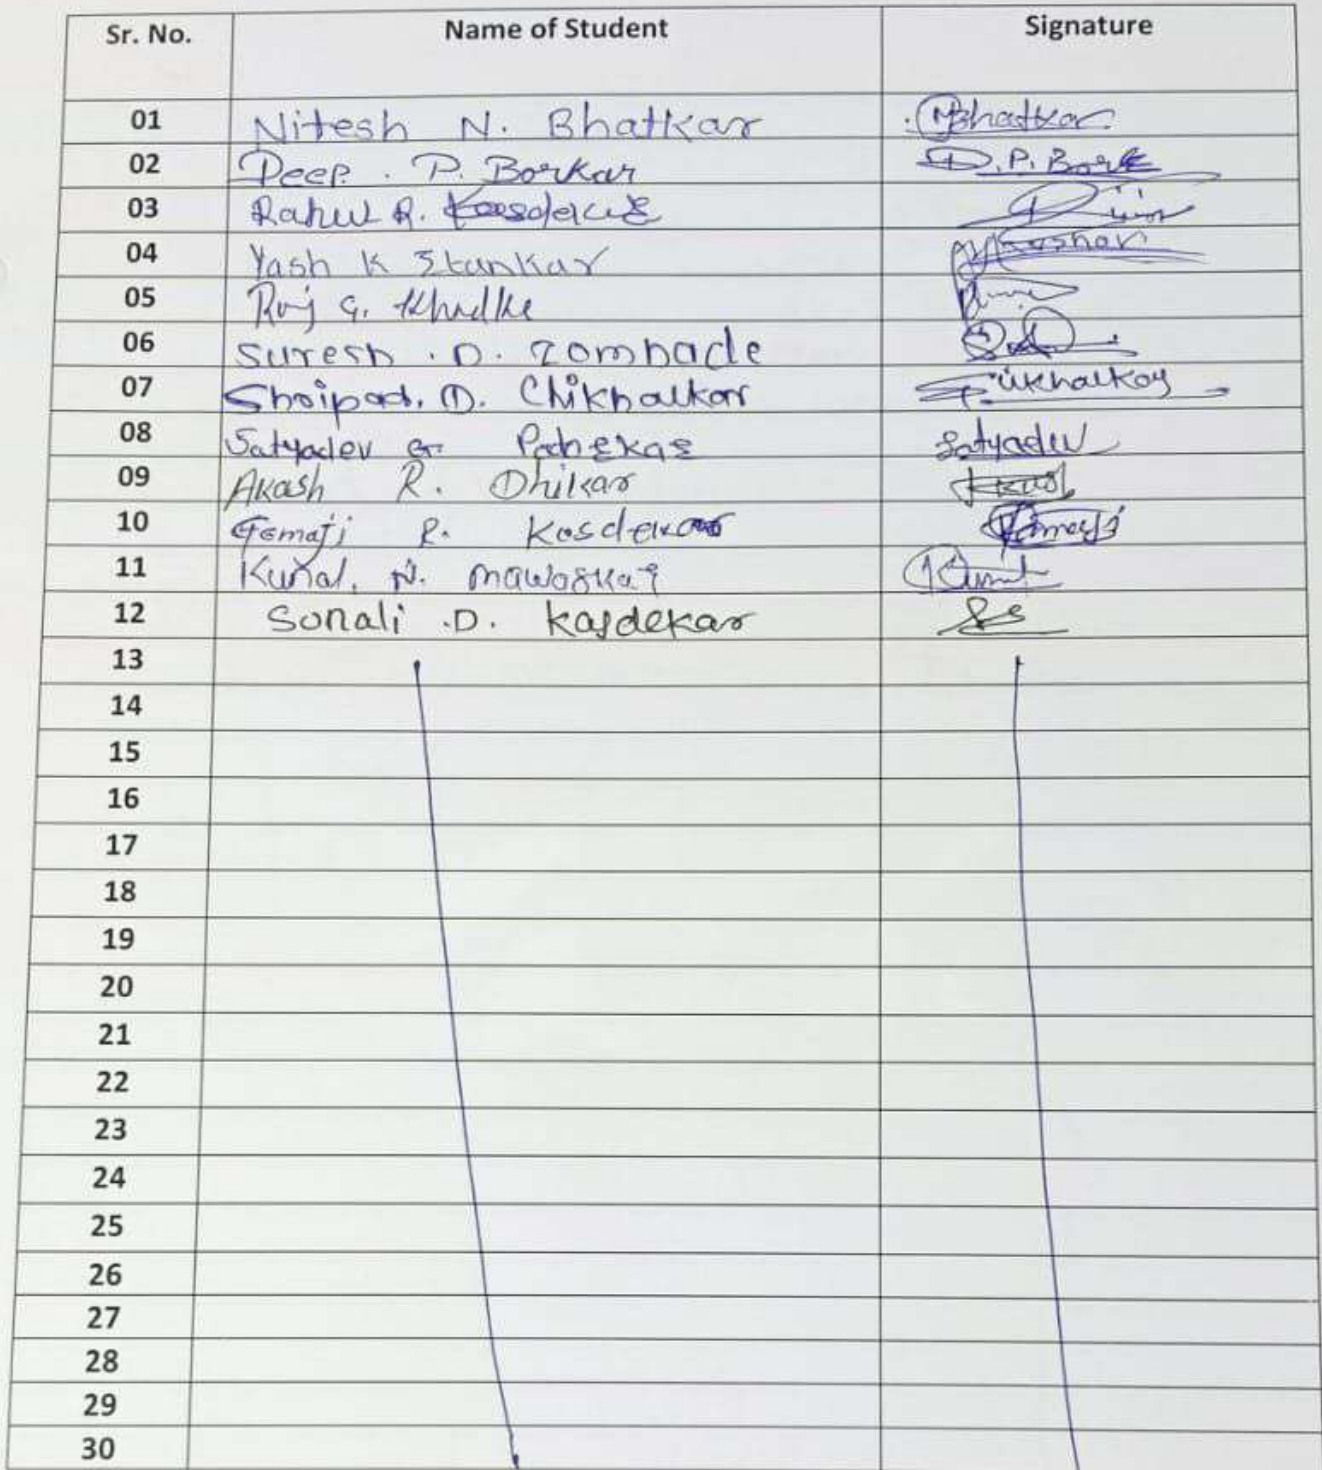 Sr. No. Name of Student Signature
01 Nitesh N. Bhatkar Bhatkar
02 Deep. P. Borkar D.P. Bork
03 Rahul R.
04 Yash K
05 Raj G.
06 Suresh . D. Zombade
07 Shripad. D. Chikhalkar
08 Satyadev Satyadev
09 Akash R. Dhikar
10 Gemaji R. Kosdekar
11 Kunal. N. Mawaskar
12 Sonali .D. Kasdekar
13
14
15
16
17
18
19
20
21
22
23
24
25
26
27
28
29
30